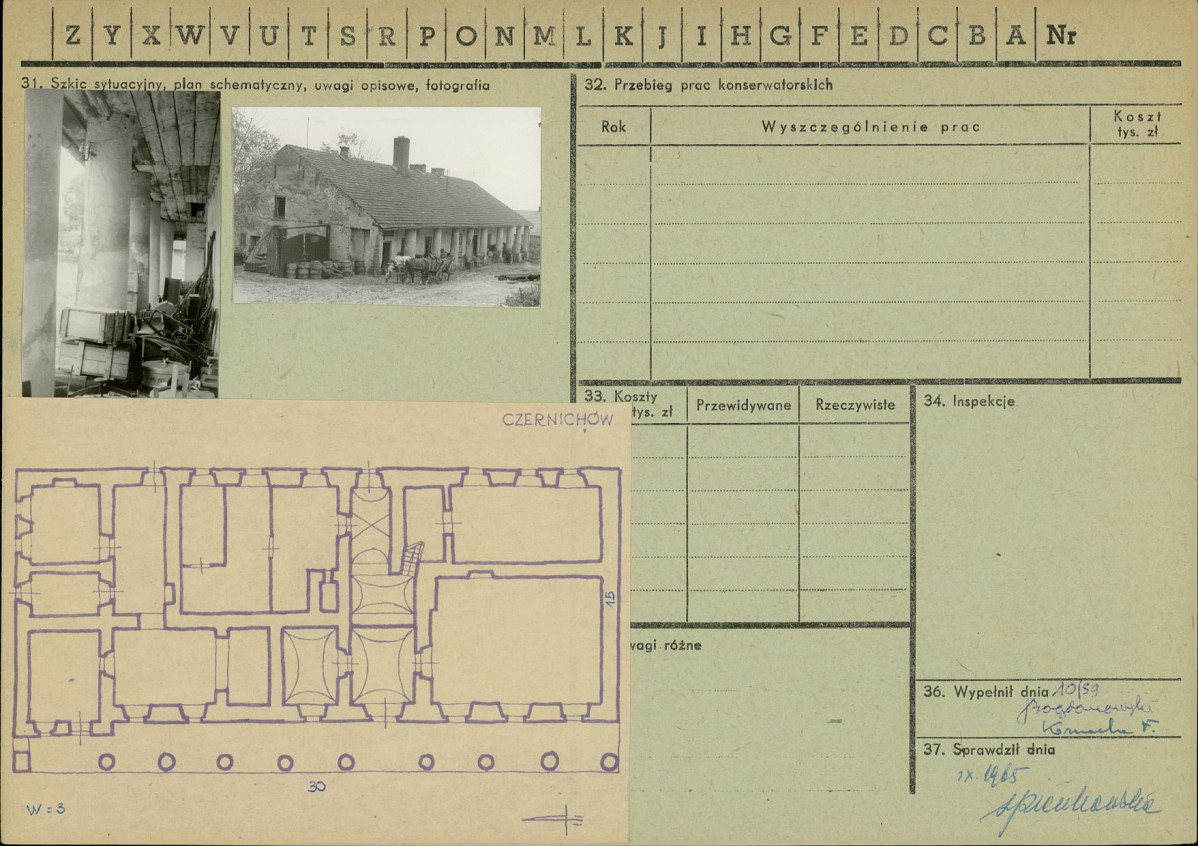 Z Y X W V U T S R P O N M L K J I H G F E D C B A Nr
31. Szkic sytuacyjny, plan schematyczny, uwagi opisowe, fotografia
32. Przebieg prac konserwatorskich
Rok
Wyszczególnienie prac
Koszt
tys. zł
33. Koszty
tys. zł
Przewidywane
Rzeczywiste
34. Inspekcje
CZERNICHÓW
15
30
W = 3
wagi różne
36. Wypełnił dnia 10/59
37. Sprawdził dnia
IX. 1965